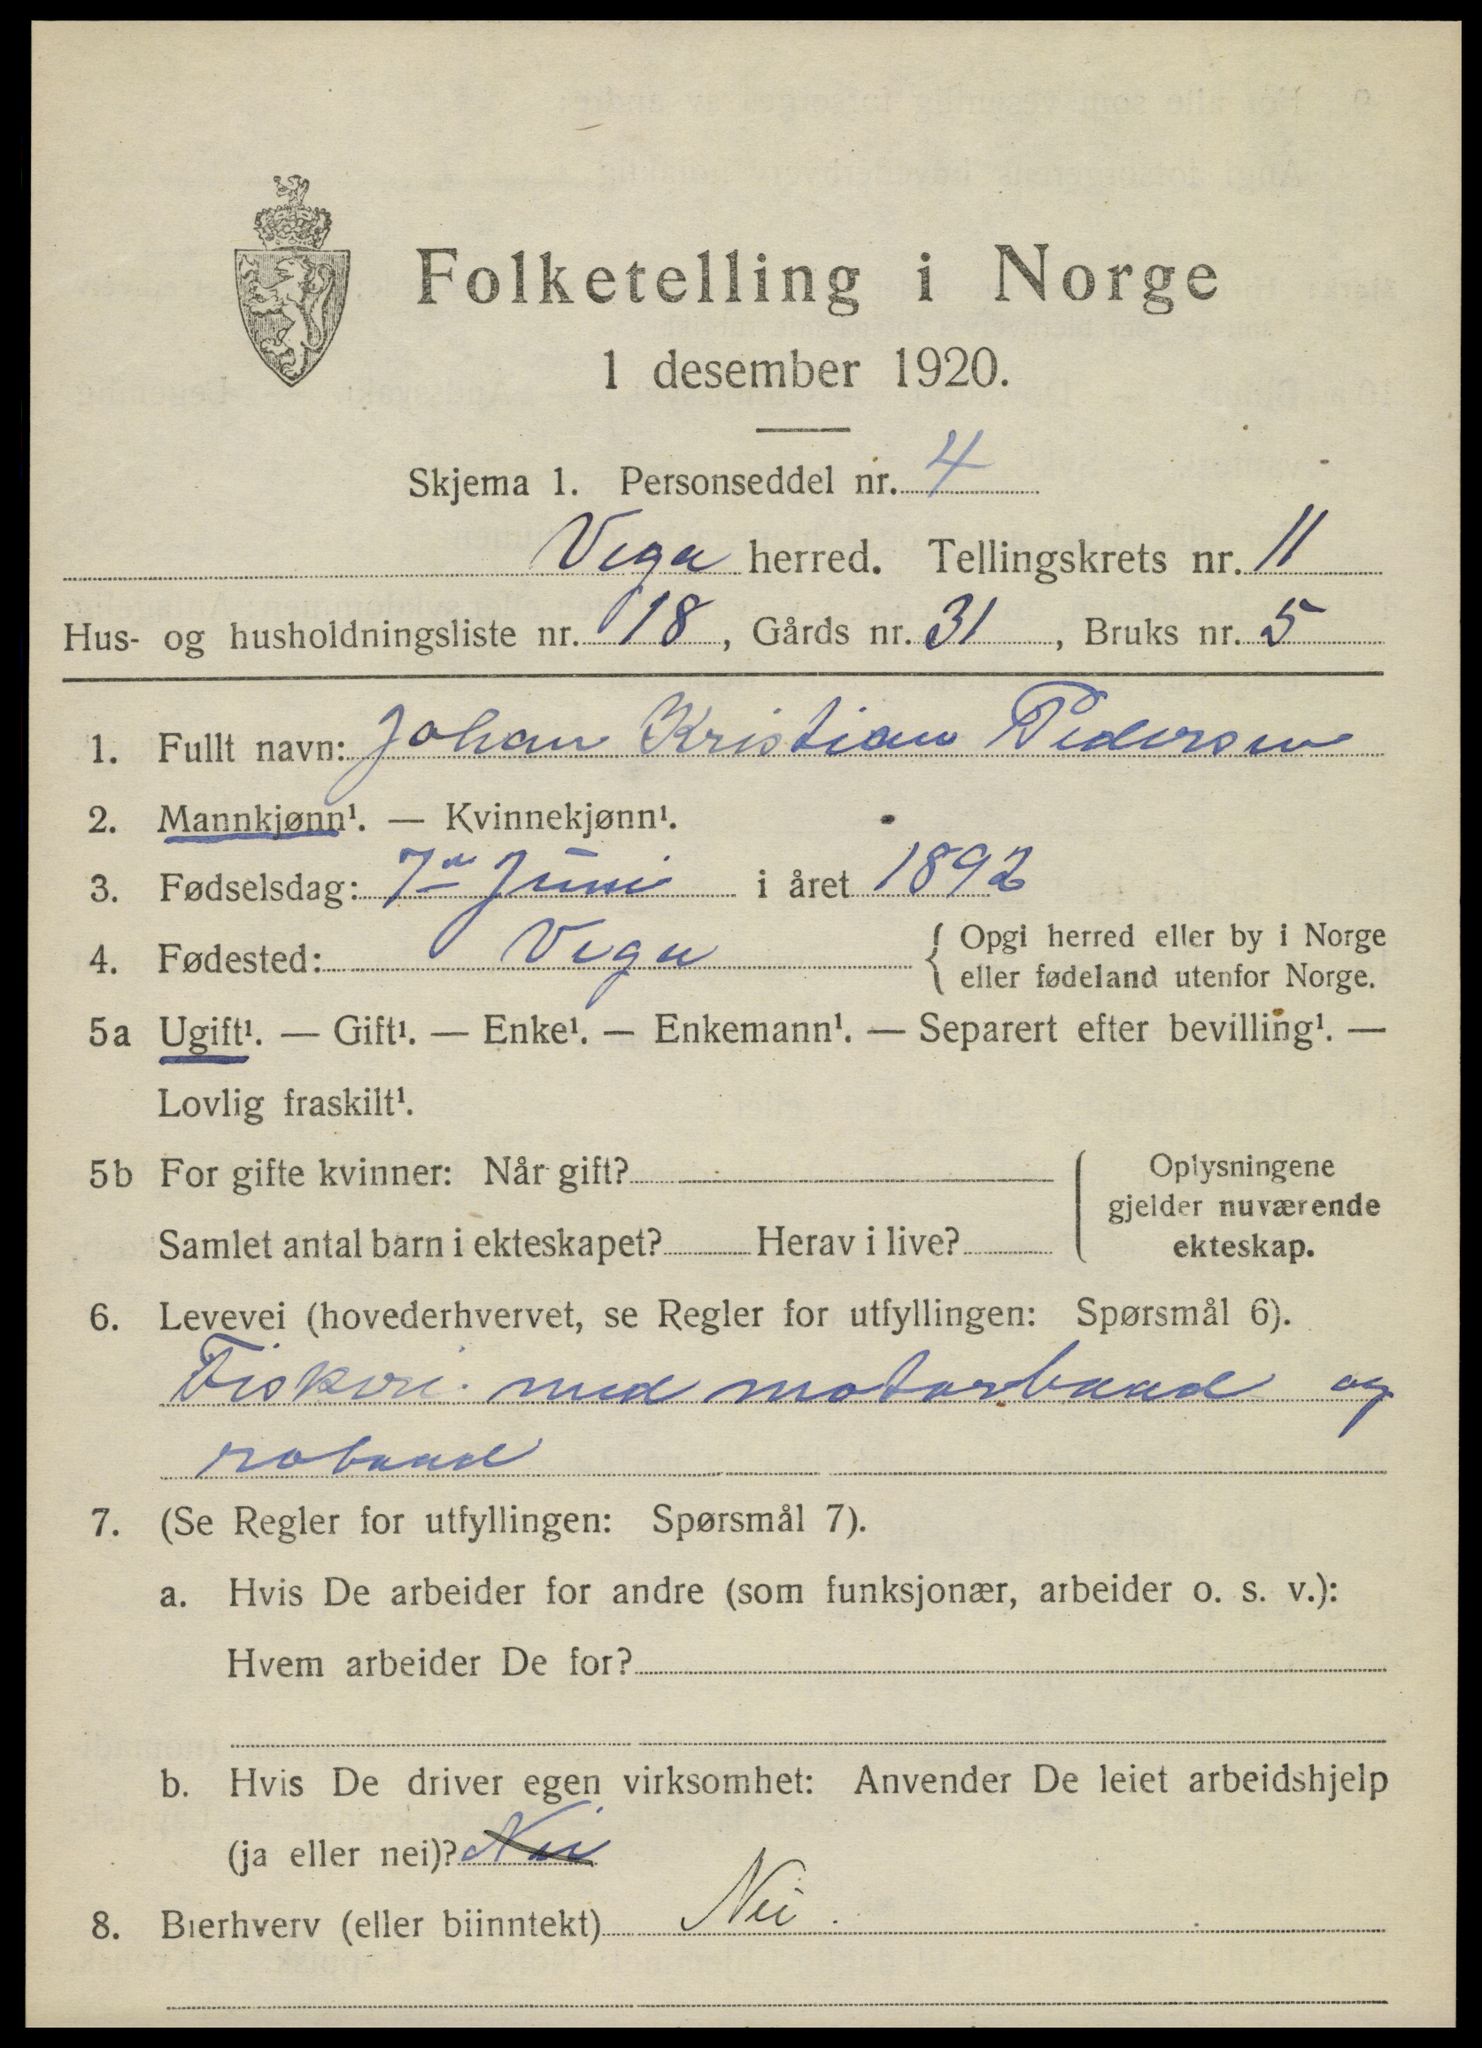 Folketelling i Norge
1 desember 1920.
Skjema 1. Personseddel nr. 4
Vega herred. Tellingskrets nr. 11
Hus- og husholdningsliste nr. 18, Gårds nr. 31, Bruks nr. 5
1. Fullt navn: Johan Kristian Pedersen
2. Mannkjønn¹. — Kvinnekjønn¹.
3. Fødselsdag: 7de Juni i året 1892
4. Fødested: Vega { Opgi herred eller by i Norge
eller fødeland utenfor Norge.
5a Ugift¹. — Gift¹. — Enke¹. — Enkemann¹. — Separert efter bevilling¹. —
Lovlig fraskilt¹.
5b For gifte kvinner: Når gift?
Samlet antal barn i ekteskapet? Herav i live?
Oplysningene
gjelder nuværende
ekteskap.
6. Levevei (hovederhvervet, se Regler for utfyllingen: Spørsmål 6).
Fiskeri med motorbaad og
robaad
7. (Se Regler for utfyllingen: Spørsmål 7).
a. Hvis De arbeider for andre (som funksjonær, arbeider o. s. v.):
Hvem arbeider De for?
b. Hvis De driver egen virksomhet: Anvender De leiet arbeidshjelp
(ja eller nei)? Nei
8. Bierhverv (eller biinntekt) Nei.